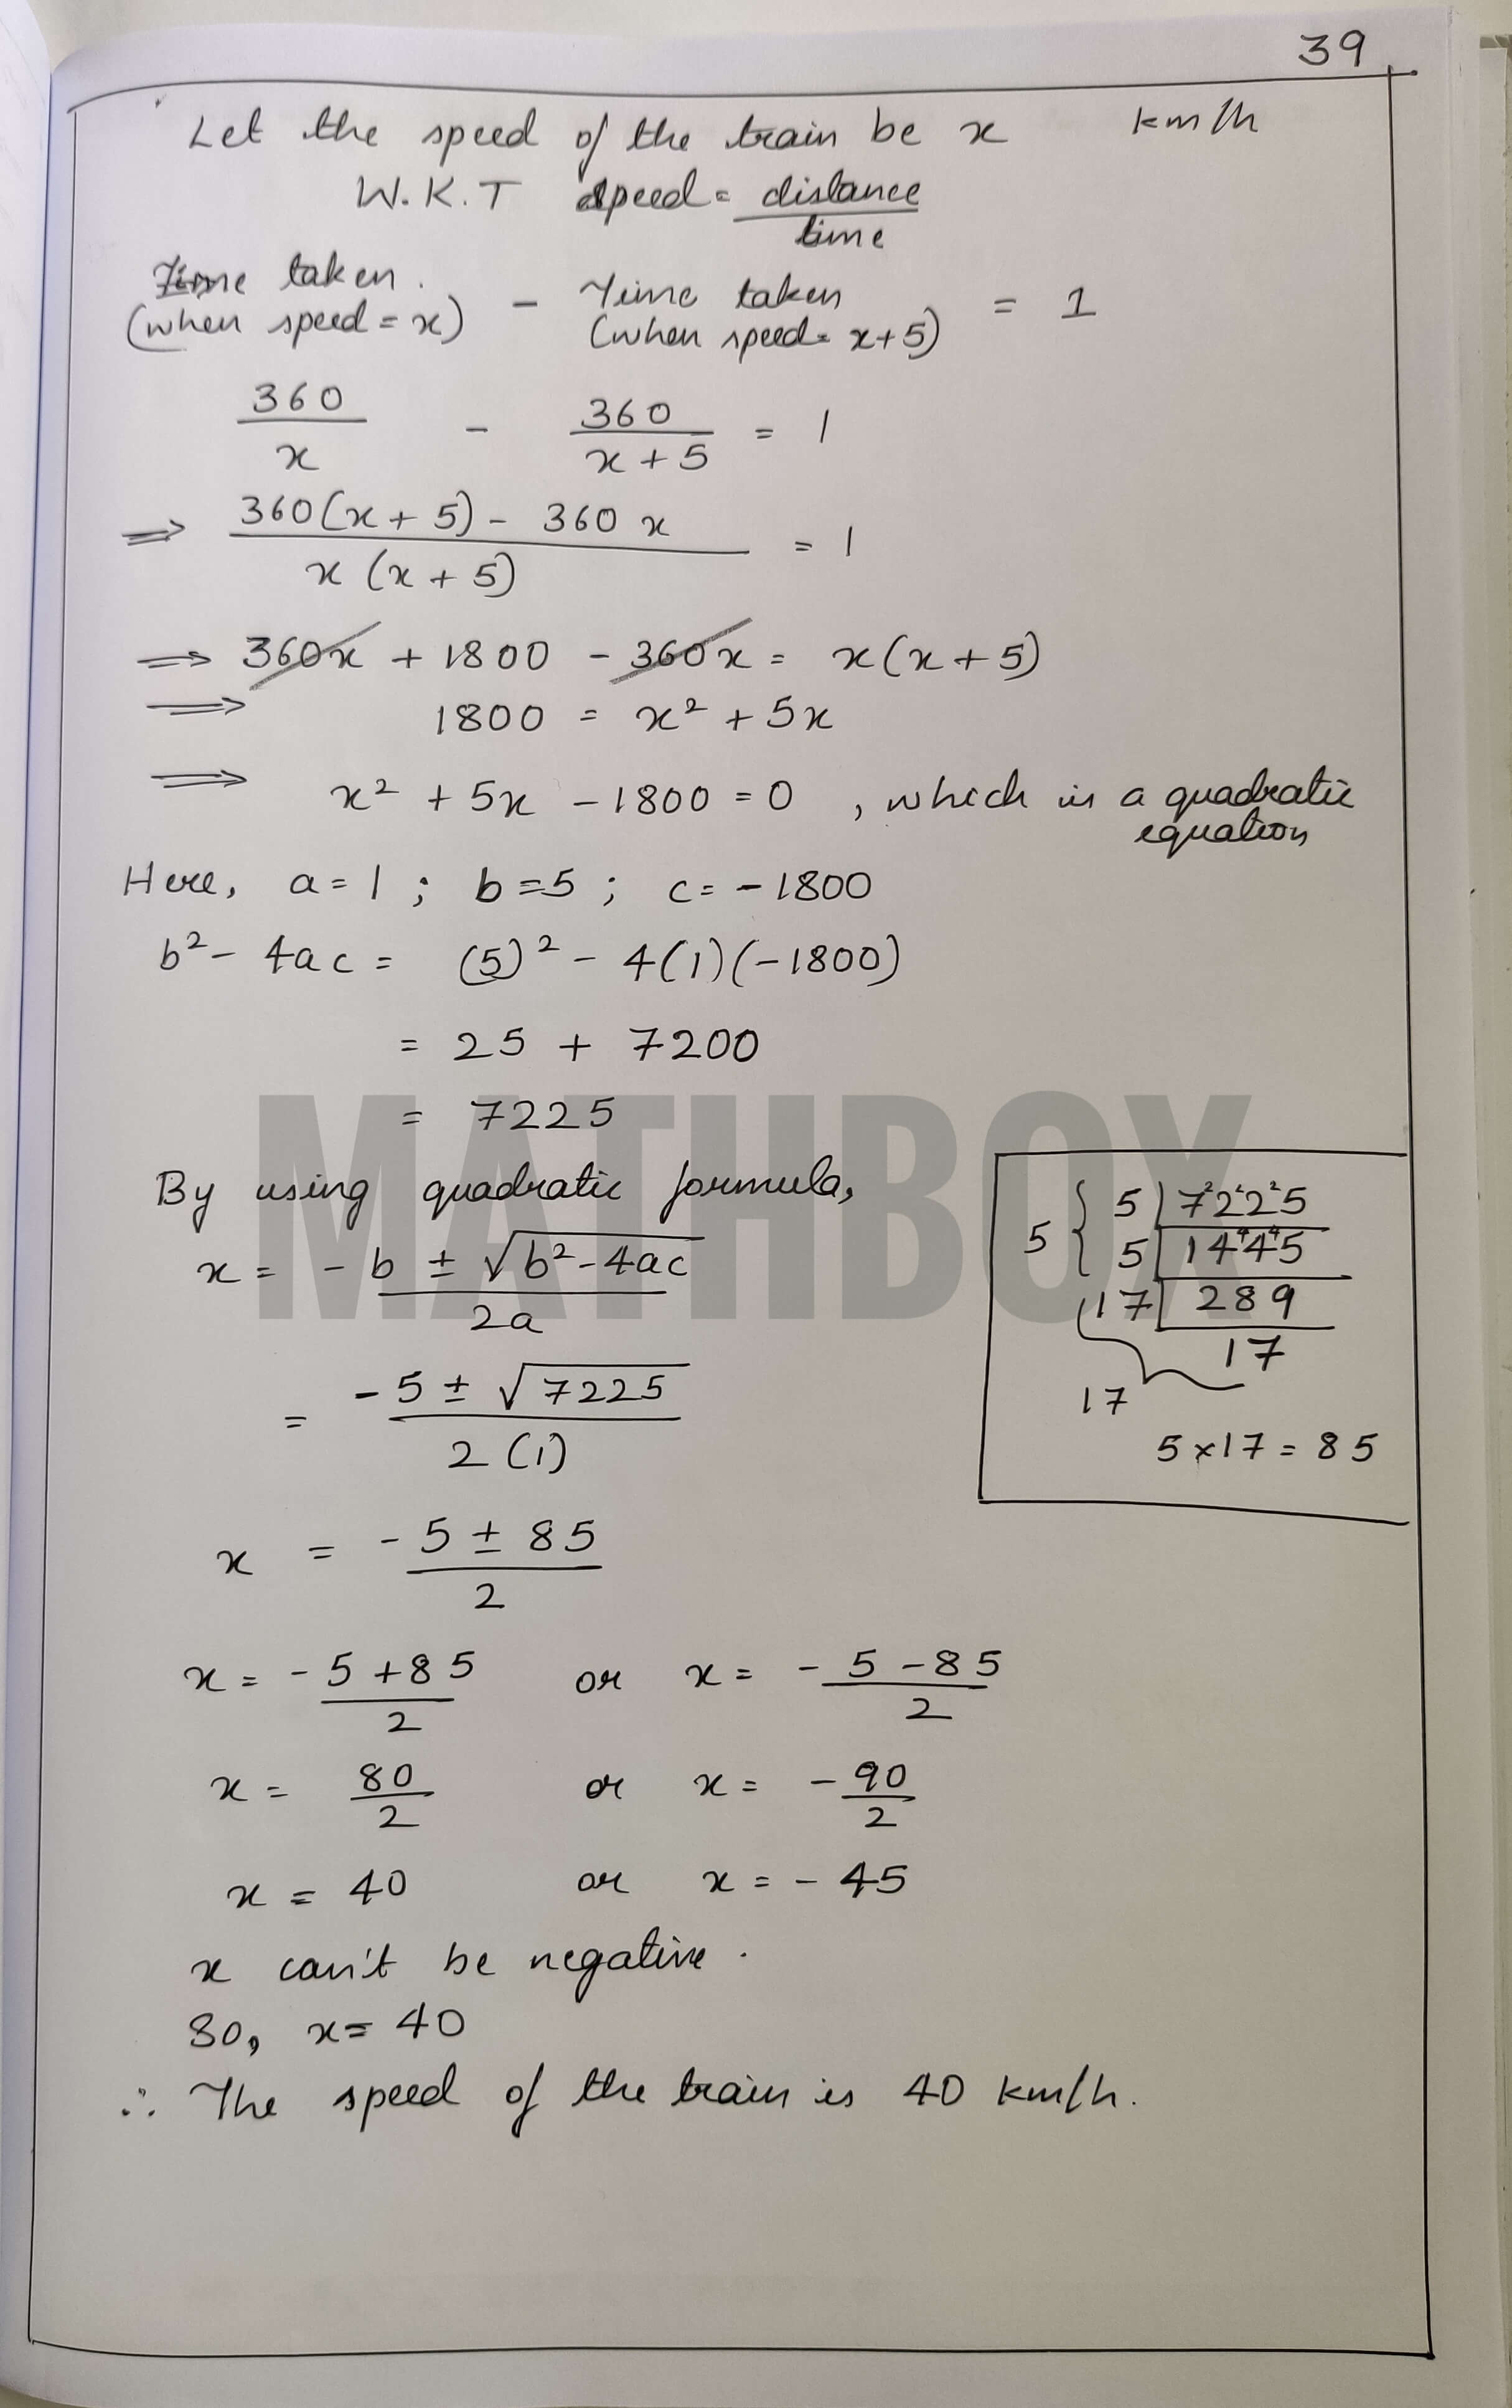 39
Let the speed of the train be x km/h
W.K.T speed = distance / time
Time taken (when speed = x) - Time taken (when speed = x+5) = 1
360/x - 360/(x+5) = 1
⇒ (360(x+5) - 360x) / (x(x+5)) = 1
⇒ 360x + 1800 - 360x = x(x+5)
⇒ 1800 = x² + 5x
⇒ x² + 5x - 1800 = 0 , which is a quadratic
equation
Here, a=1 ; b=5 ; c= -1800
b² - 4ac = (5)² - 4(1)(-1800)
= 25 + 7200
= 7225
MATHBOX
By using quadratic formula,
x = (-b ± √(b²-4ac)) / 2a
= (-5 ± √7225) / 2(1)
x = (-5 ± 85) / 2
x = (-5+85)/2 or x = (-5-85)/2
x = 80/2 or x = -90/2
x = 40 or x = -45
x can't be negative.
So, x = 40
∴ The speed of the train is 40 km/h.
5 { 5 | 7225
5 | 1445
17 | 289
17
17
5×17 = 85